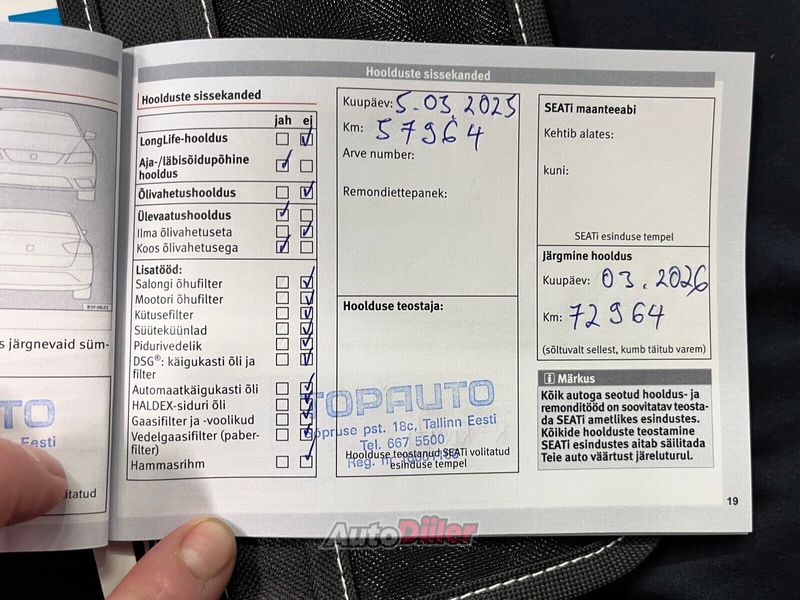 Hoolduste sissekanded
Hoolduste sissekanded
jah ei
LongLife-hooldus
Aja-/läbisõidupõhine
hooldus
Õlivahetushooldus
Ülevaatushooldus
Ilma õlivahetuseta
Koos õlivahetusega
Lisatööd:
Salongi õhufilter
Mootori õhufilter
Kütusefilter
Süüteküünlad
Pidurivedelik
DSG®: käigukasti õli ja
filter
Automaatkäigukasti õli
HALDEX-siduri õli
Gaasifilter ja -voolikud
Vedelgaasifilter (paber-
filter)
Hammasrihm
Kuupäev: 5.03.2025
Km: 57964
Arve number:
Remondiettepanek:
Hoolduse teostaja:
TOPAUTO
Sõpruse pst. 18c, Tallinn Eesti
Tel. 667 5500
Reg. nr.
Hoolduse teostanud SEATi volitatud
esinduse tempel
SEATi maanteeabi
Kehtib alates:
kuni:
SEATi esinduse tempel
Järgmine hooldus
Kuupäev: 03.2026
Km: 72964
(sõltuvalt sellest, kumb täitub varem)
i Märkus
Kõik autoga seotud hooldus- ja
remonditööd on soovitatav teosta-
da SEATi ametlikes esindustes.
Kõikide hoolduste teostamine
SEATi esindustes aitab säilitada
Teie auto väärtust järeluturul.
19
s järgnevaid süm-
UTO
Eesti
volitatud
AutoDiiler